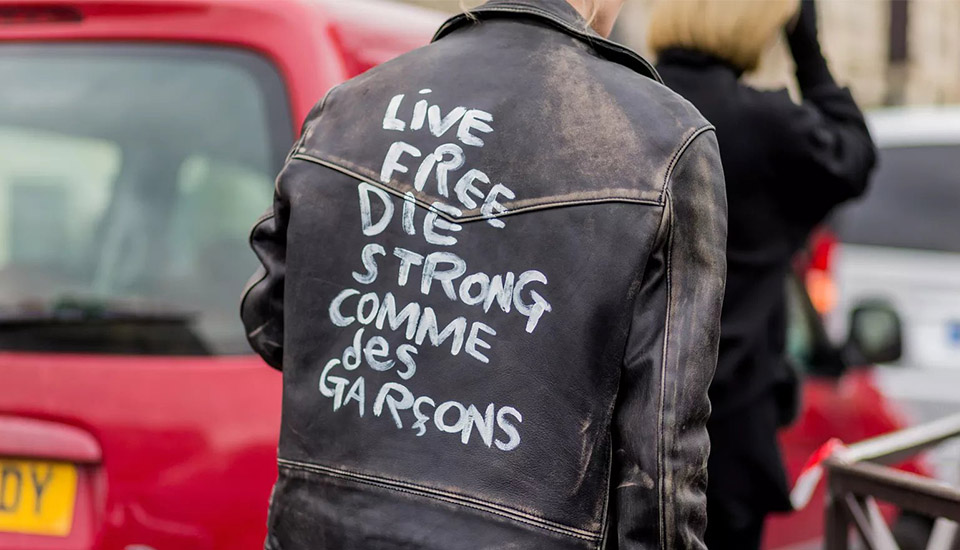 LiVE
FREE
DIE
STRONG
COMME
des
GARÇONS
DY